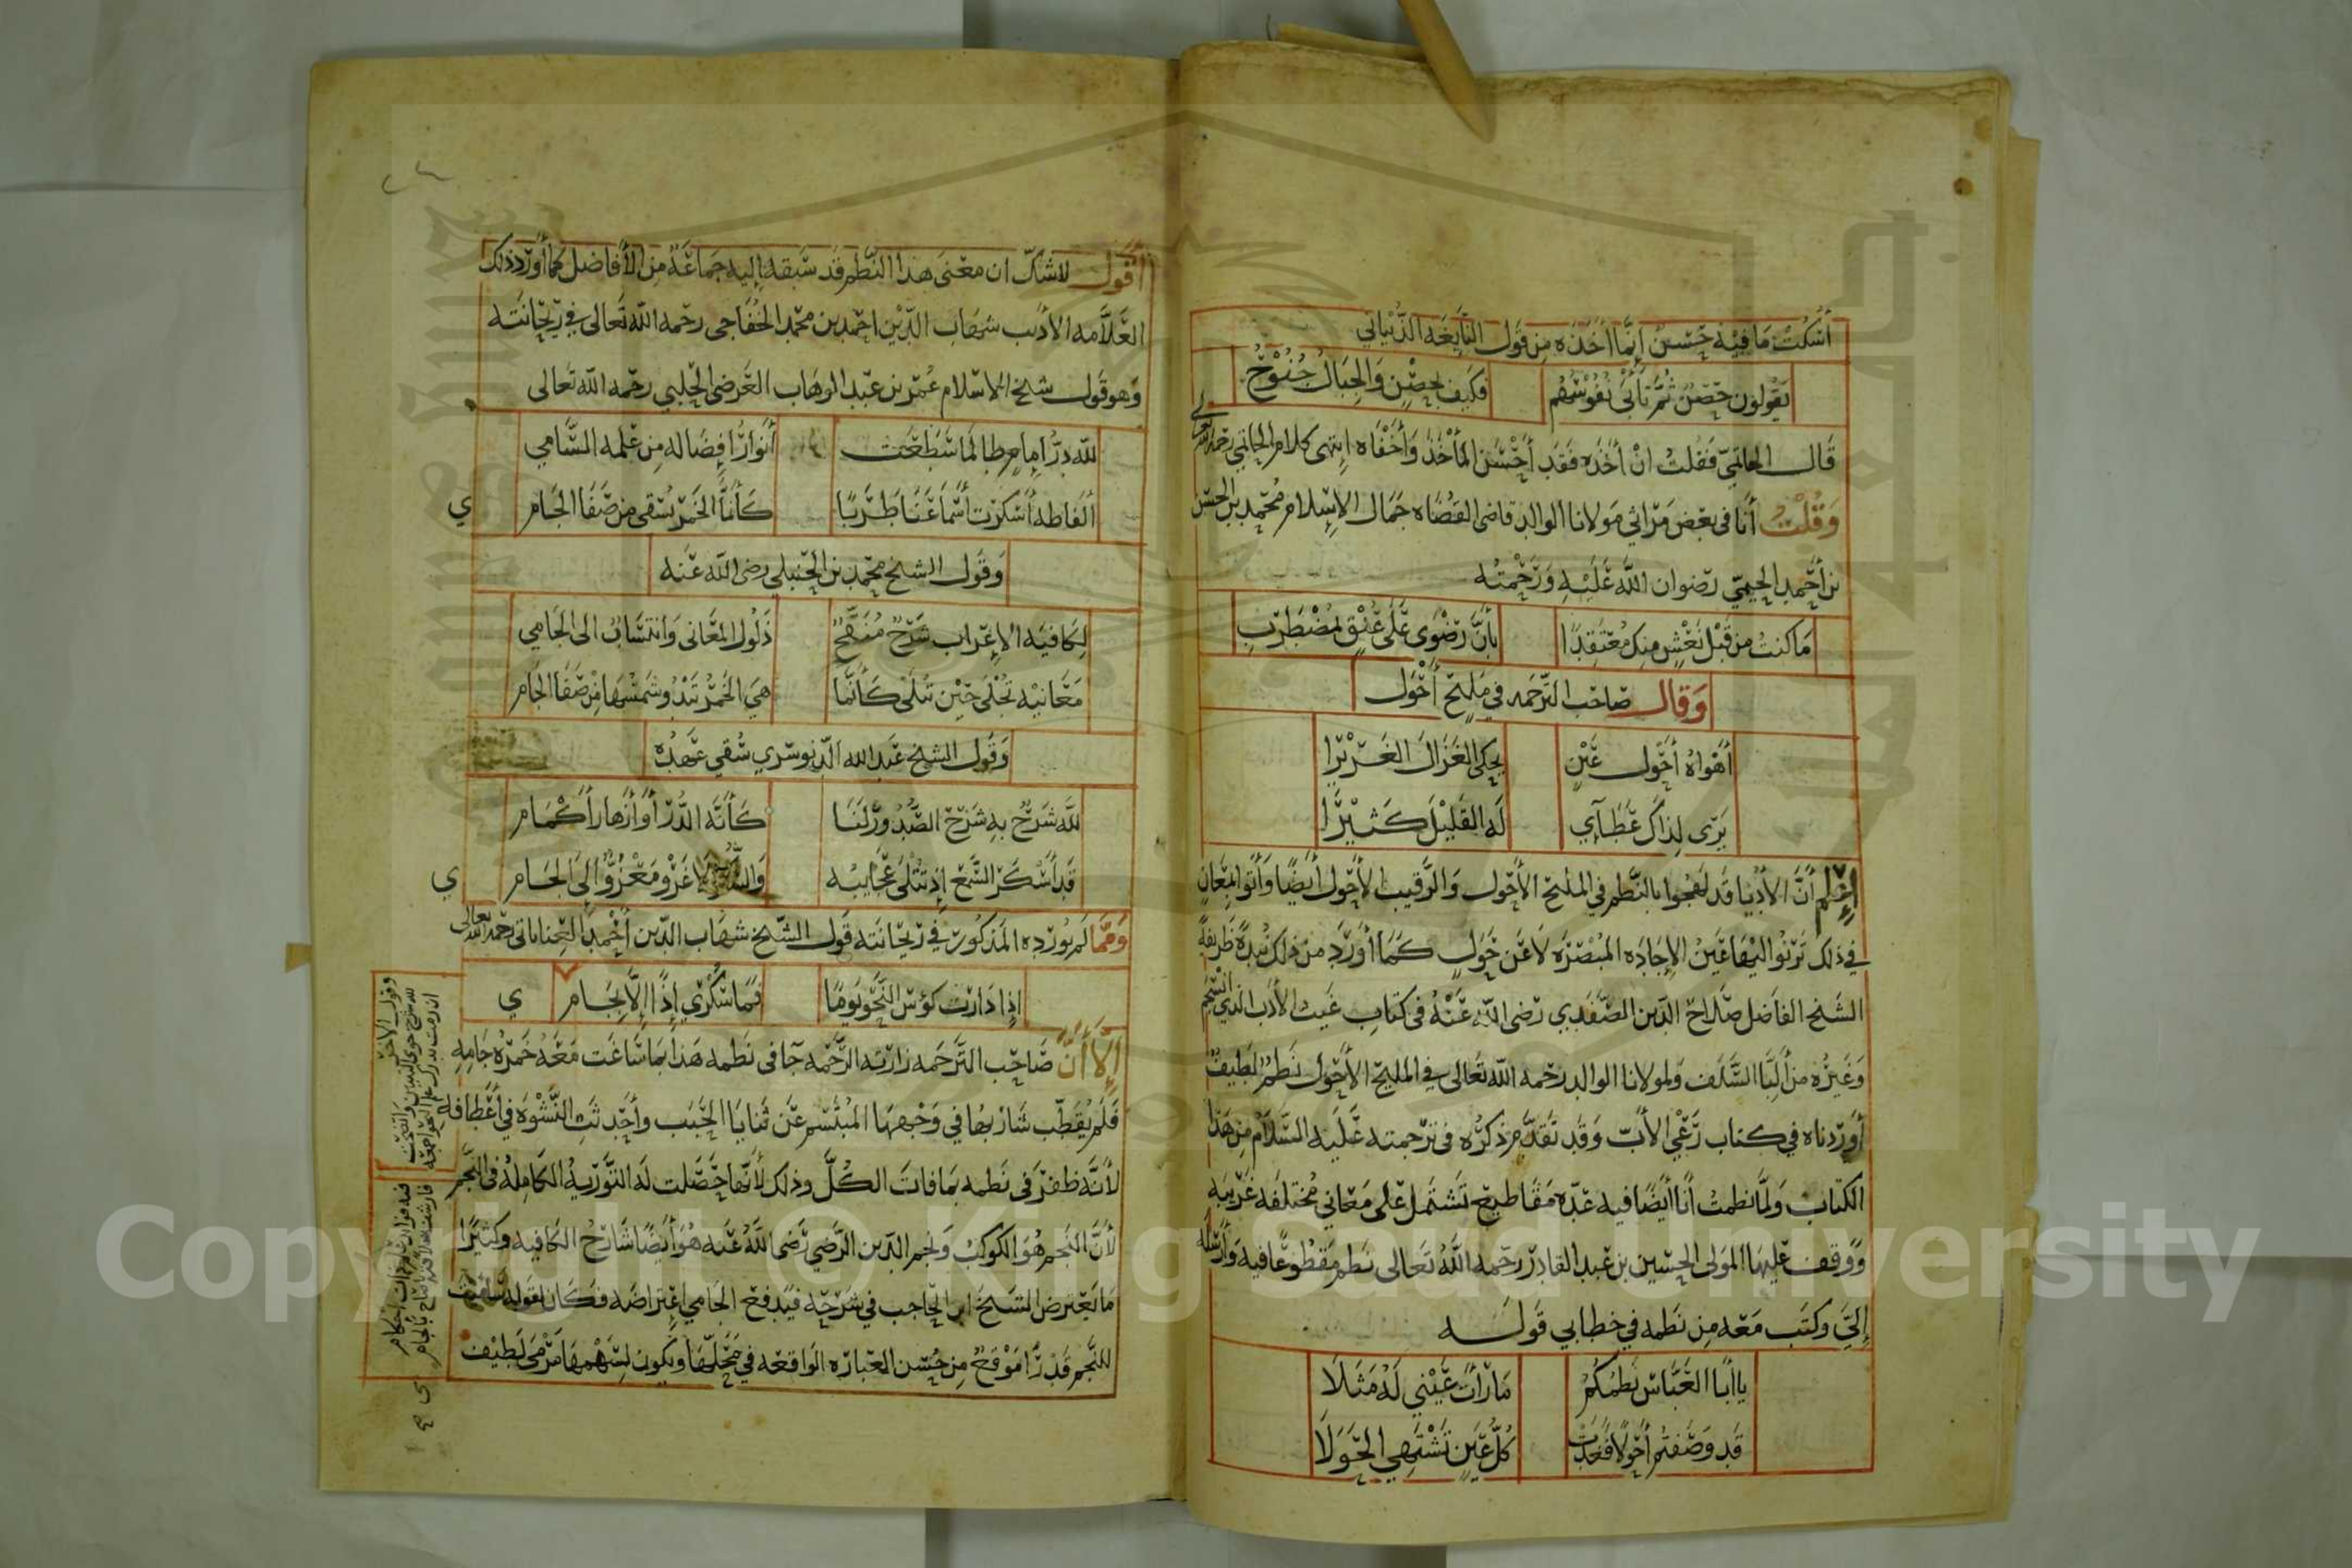 أُسْكُتْ مَا فِيْهِ حَسَنٌ إِنَّمَا أَخَذَه مِن قَول النَّابِغَه الذُّبْيَانِي
يَقُولُون حِصْنٌ ثُمَّ تَأْبَى نُفُوْسُهُم فَكَيف بِحِصْنٍ وَالجِبَالُ جُنُوْحُ
قَال الحاتميّ فقلتُ انْ أخَذَه فَقَد أحْسَن المأْخَذ وَأَخْفَاه اِنتهى كلام الحاتمي رحمه الله تعالى
وَقُلْتُ أنَا في بعض مَرَاثي مَولانا الوالد قاضى القضاه جَمال الاسلام مُحَمد بن الحسن
بن أحمد الحيمي رضوان الله عَلَيْهِ وَرَحْمَتُه
مَا كنتُ من قَبْل نَعْشٍ منكِ مُعْتَقِدًا بِأنَّ رَضْوَى عَلَى عُنْقٍ لِمُضْطَرِبِ
وَقال صَاحب الترجمه في مَلِيْحٍ أحْوَل
أَهْوَاهُ أحْوَل عَيْنٍ يحكى الغَزَالَ الغَرِيْرَا
يَرَى لِذَاكَ عَطَآئِي لَه القَلِيْلَ كَثِيْرَا
إِعْلم أنَّ الأدبَا قَد لهجوا بالنَّظم في المليح الأحْوَل وَالرَّقيب الأحْول أيضًا وَأتَوا بِمَعَانٍ
في ذلك تَرْنُو اليْهَا عَيْنُ الإجَادَه المُبْصِرَه لَا عَن حَوَلٍ كَمَا أوْرَد من ذلك نُبْذَةً ظَريفةً
الشَّيخ الفاضل صَلاح الدّين الصَّفَدي رَضى الله عَنْهُ في كتابِ غيث الأدب الذي انْسَجَم
وَغَيْرُه من أَلِبَّا السَّلَف وَلمولانا الوالد رحمه الله تَعالى في المليح الأحْوَل نَظمٌ لَطِيفٌ
أورَدناه في كتاب رَعْي الأبّ وَقَد تَقَدَّم ذكرُه في ترجمته عَلَيه السَّلَام مِن هَذَا
الكتاب وَلمَّا نظمتُ أنَا أيْضًا فيه عِدّه مَقَاطيع تَشتمل عَلى مَعَاني مُختلفَه غَريبَه
وَوَقف عليهَا المَولى الحسين بن عَبد القادر رحمه الله تَعَالى نَظم مَقْطُوعًا فيه وَأرْسَله
إلَيَّ وَكتَب مَعَه مِن نَظمه في خِطابي قَوله
يا أبَا العَبَّاس نَظمُكُمُ مَا رَأتْ عَيْني لَهُ مَثَلَا
قَد وَصَفتُم أحْوَلًا فَغَدَتْ كُلُّ عَيْنٍ تَشْتَهي الحَوَلَا
أقول لاشكّ ان مَعْنى هذا النَّظم قد سَبقه إليه جَماعَةٌ من الأفاضل كما أورَد ذلك
العَلَّامه الأديب شهَاب الدِّيْن احمد بن محمّد الخَفَاجي رحمه الله تعالى في رَيْحَانته
وَهو قَول شيخ الاسلام عُمَر بن عَبد الوهاب العَرضى الحلبي رحمه الله تعالى
لله دَرّ إمامٍ طالَما سَطَعَت أنوارُ إفضاله مِن عِلمه السَّامي
ألفاظه أسْكرَت أسْمَاعَنَا طَرَبًا كَأنَّهَا الخَمرُ تُسْقى مِن صَفَا الجَامِ ي
وَقَول الشيخ محمد بن الحنبلي رضى الله عَنه
لِكَافية الإعْرَاب شَرْحٌ مُنَقَّحٌ ذَلُول المعَاني وَانتسَابٌ الى الجَامي
مَعَانيْه تُجْلَى حِيْن تُتْلَى كَأنَّمَا هيَ الخَمْرُ تَبْدُو شَمسُهَا مِنْ صَفَا الجَام
وَقَول الشيخ عَبد الله الدّنوسَري سُقي عَهْدُه
لله شَرْحٌ بهِ شَرْحُ الصُّدُوْر لَنَا كَأنَّه الدُّرّ أوْ أزْهَار أَكْمَام
قَد أَسْكَر السَّمْعَ إذ تُتْلَى عَجَايبُه وَالسُّكْرُ لا غَرْو مَعْزُوٌّ إلى الجَام ي
وَممّا لم يُوْرده المَذكور في رَيْحَانته قَول الشيخ شهَاب الدّين أحْمد رحمه الله تعالى
إذَا دَارَتْ كؤس النَّحْو يَومًا فَمَا سُكْري إذًا إلّا بِجَامِ ي
إِلَّا أَنَّ صَاحِب التَّرجَمه زارَته الرَّحْمه جَآ في نَظمه هَذا بمَا سَاغَت مَعَهُ خَمرُه جَامِه
فَلم يُقَطّب شَارِبهَا في وَجْهِهَا المُبْتَسم عَن ثنايَا الحَبَب وأحْدَثَت النَّشْوَه في أعْطافه
لأنَّه ظفرَ في نَظمه بمَا فاتَ الكُلَّ وذلك لأنّهَا حَصَلت لَه التَّوْريَهُ الكَامِلَه في النَّجْم
لأنّ النَجم هُوَ الكوكبُ وَنجم الدّين الرَّضي رَضى الله عَنه هُوَ أيْضًا شَارحُ الكافيه وَكثيرًا
مَا يَعْترض الشيخ ابن الحَاجب في شَرْحِه فَيَدفع الجَامي إعْتراضَه فَكَان لقَوله
للنَّجم قَدْرًا مَوْقعٌ مِن حُسْن العِبَارَه الواقعَه في مَحَلّهَا وَيكون لسَهْمهَا مَرْمَى لَطِيْف
وقول الآخر